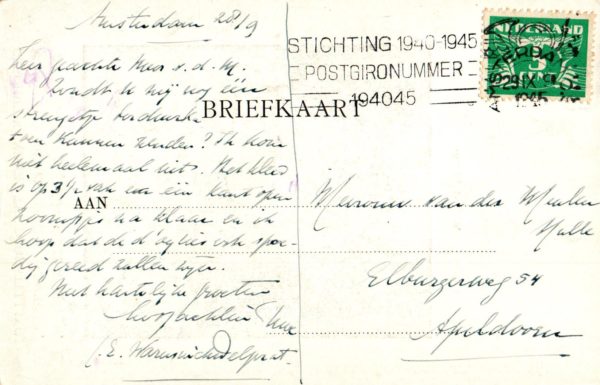 Amsterdam 28/9
Zeer geachte Mevr. v. d. M.
Zoudt u mij nog één
strengetje borduur
toe kunnen zenden? Ik kom
niet heelemaal uit. Het kleed
is op 3½ vak en één kant open
hoornpjes na klaar en ik
hoop dat de d' oylies ook spoe-
dig gereed zullen zijn.
Met hartelijke groeten
hoogachtend
E.
STICHTING 1940-1945
POSTGIRONUMMER
194045
AMSTERDAM
29 IX
1945
NEDERLAND
BRIEFKAART
AAN
Mevrouw van der Meulen
Elburgerweg 54
Apeldoorn